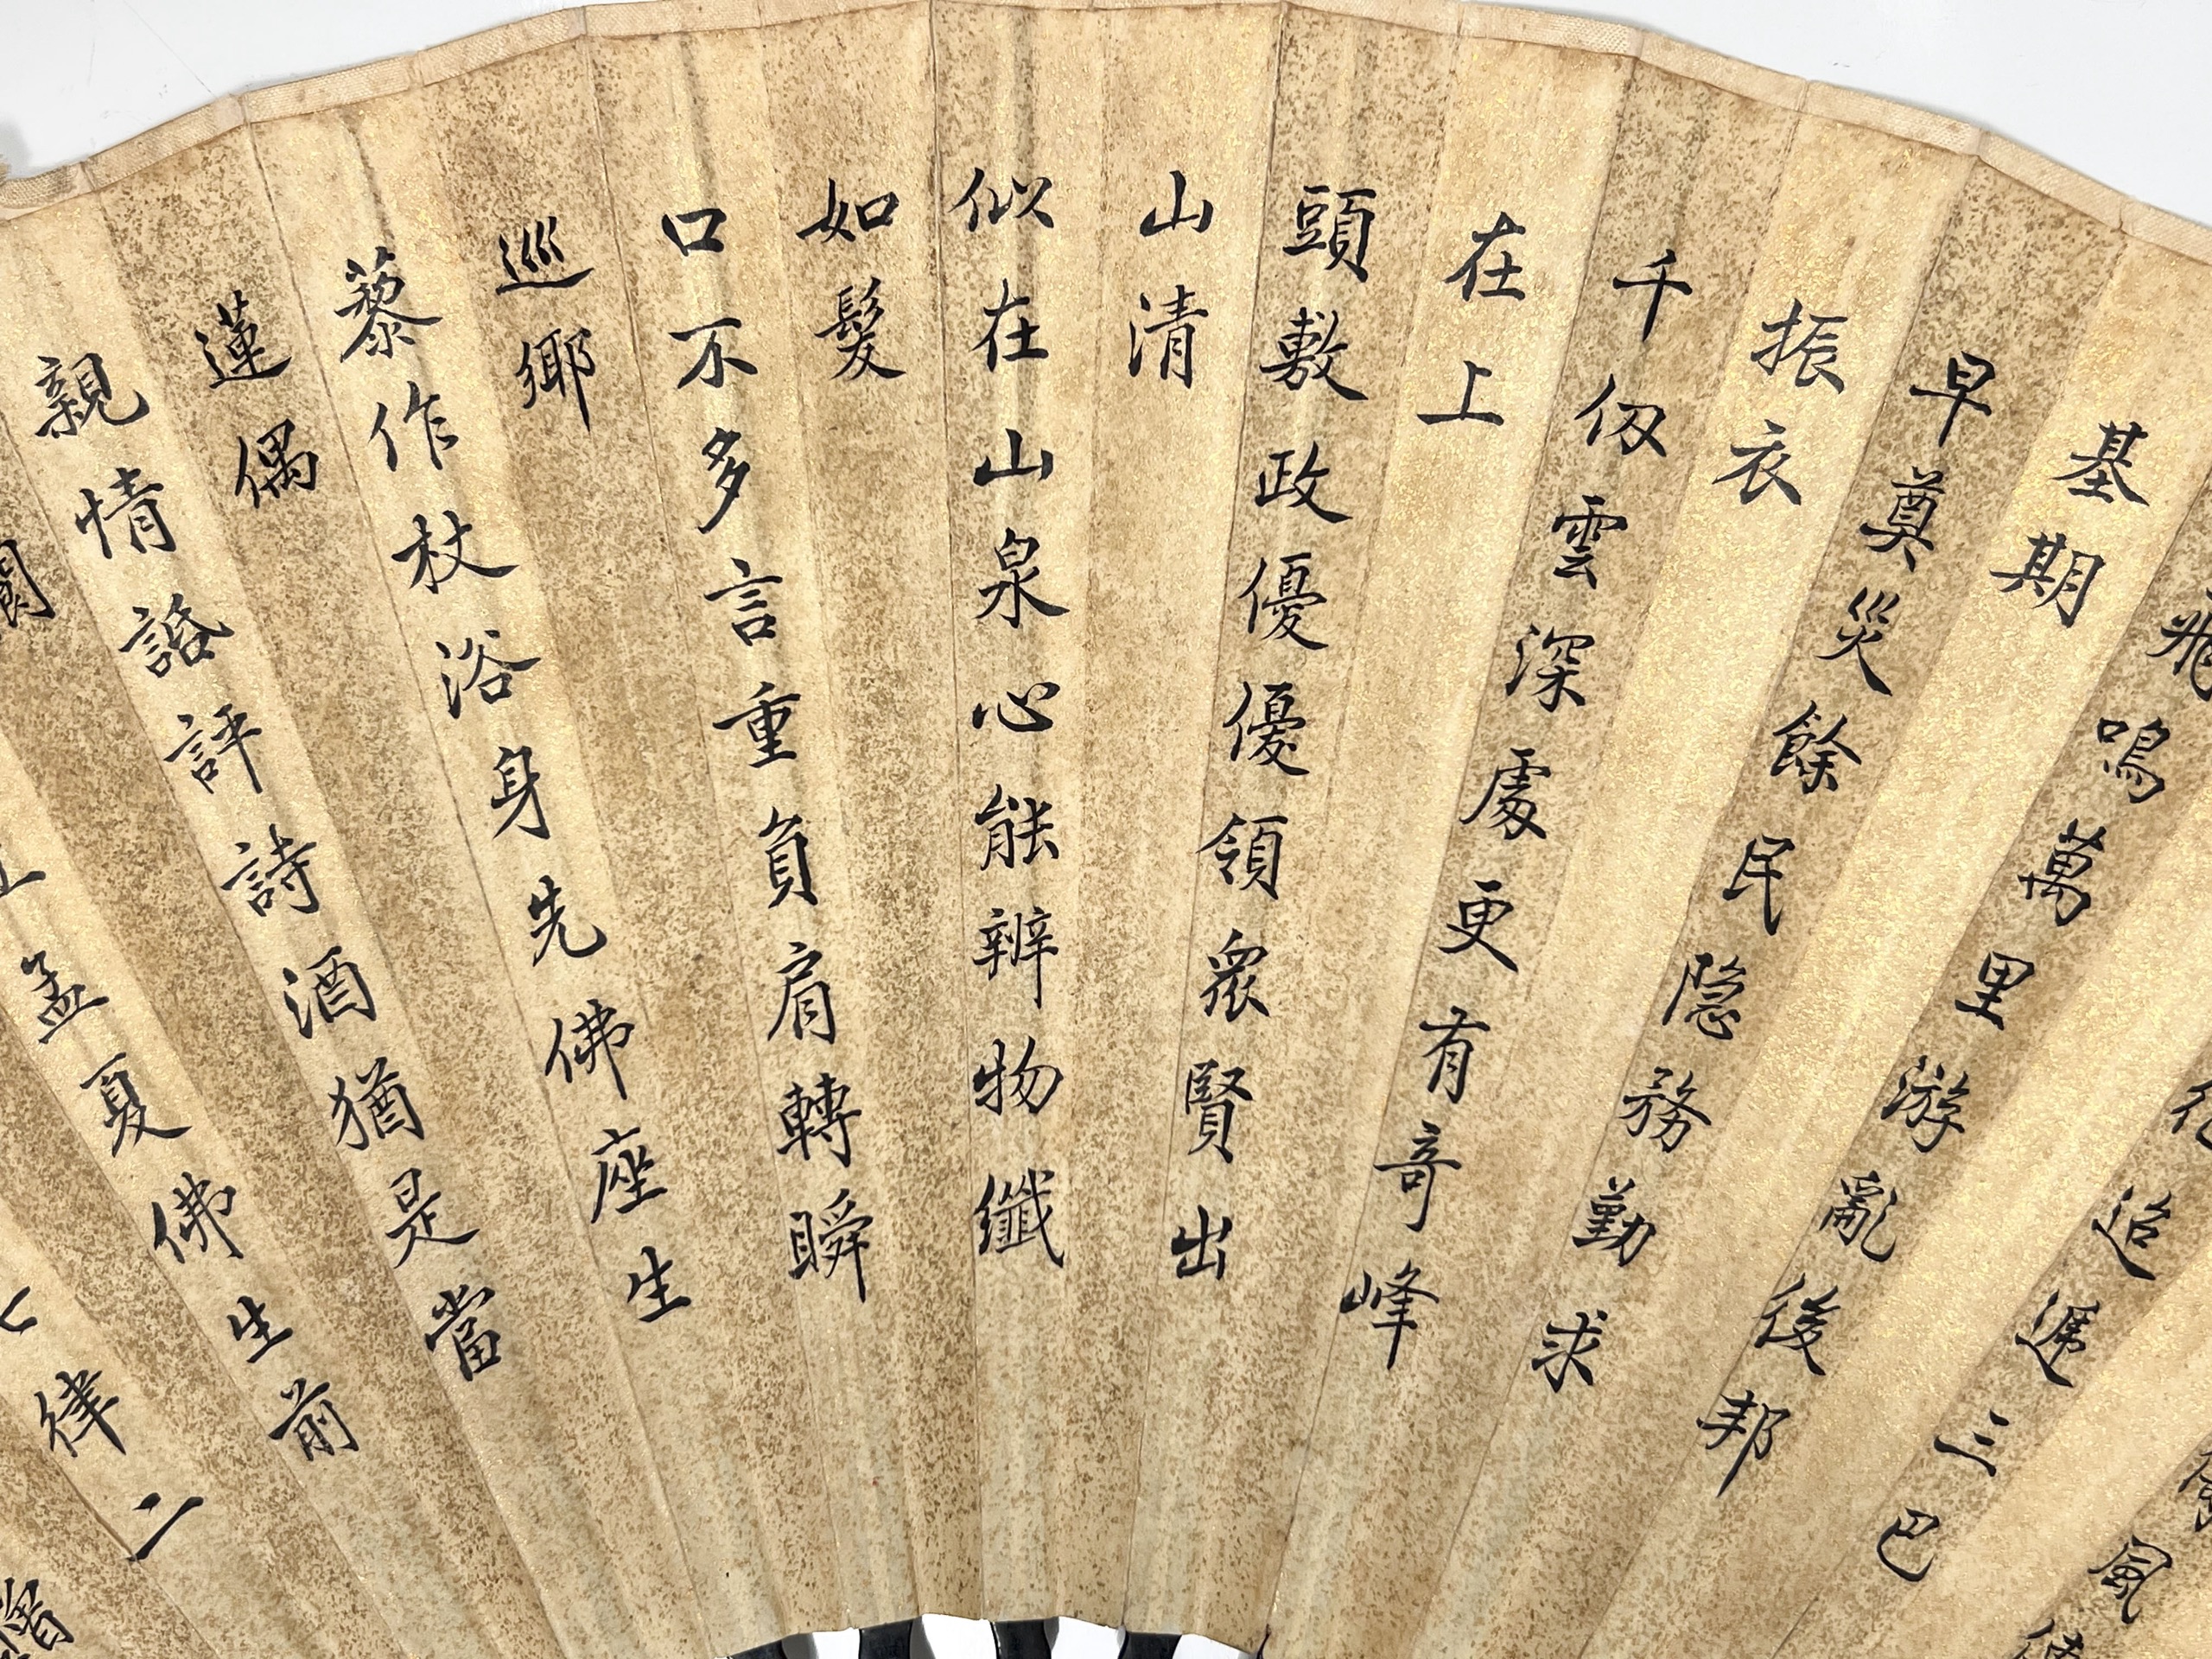 風
迢遞三巴
飛鳴萬里游亂後邦
基期
早奠災餘民隐務勤求
振衣
千仞雲深處更有奇峰
在上
頭敷政優優領衆賢出
山清
似在山泉心能辨物纖
如髮
口不多言重負肩轉瞬
巡鄉
藜作杖浴身先佛座生
蓮偶
親情諙評詩酒猶是當
孟夏佛生前
律二